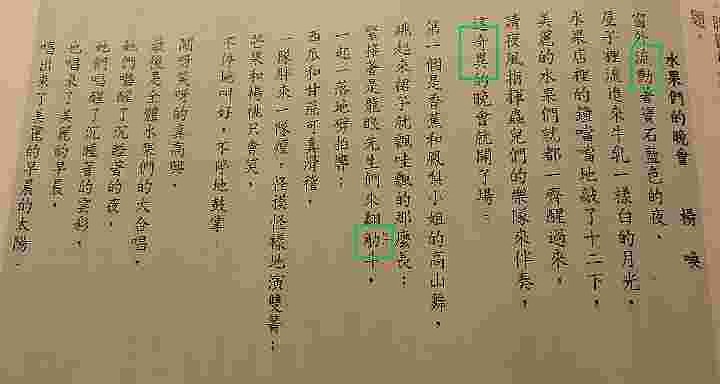 水果們的晚會
楊喚
窗外流動著寶石藍色的夜,
屋子裡流進來牛乳一樣白的月光,
水果店裡的鐘噹噹地敲了十二下,
美麗的水果們就都一齊醒過來,
請夜風指揮蟲兒們的樂隊來伴奏,
這奇異的晚會就開了場:
第一個是香蕉和鳳梨小姐的高山舞,
跳起來裙子就飄呀飄的那麼長;
緊接著是龍眼先生們來翻觔斗,
一起一落地劈拍響;
西瓜和甘蔗可真滑稽,
一隊胖來一隊瘦,怪模怪樣地演雙簧;
芒果和楊桃只會笑,
不停地叫好,不停地鼓掌。
鬧呀笑呀的真高興,
最後是全體水果們的大合唱,
他們唱醒了沉睡著的夜,
他們唱醒了沉睡著的雲彩,
也唱來了美麗的早晨,
唱出來了美麗的早晨的太陽。